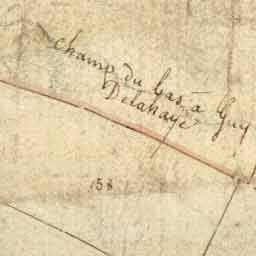 champ du bas à Guy
Delahaye
58